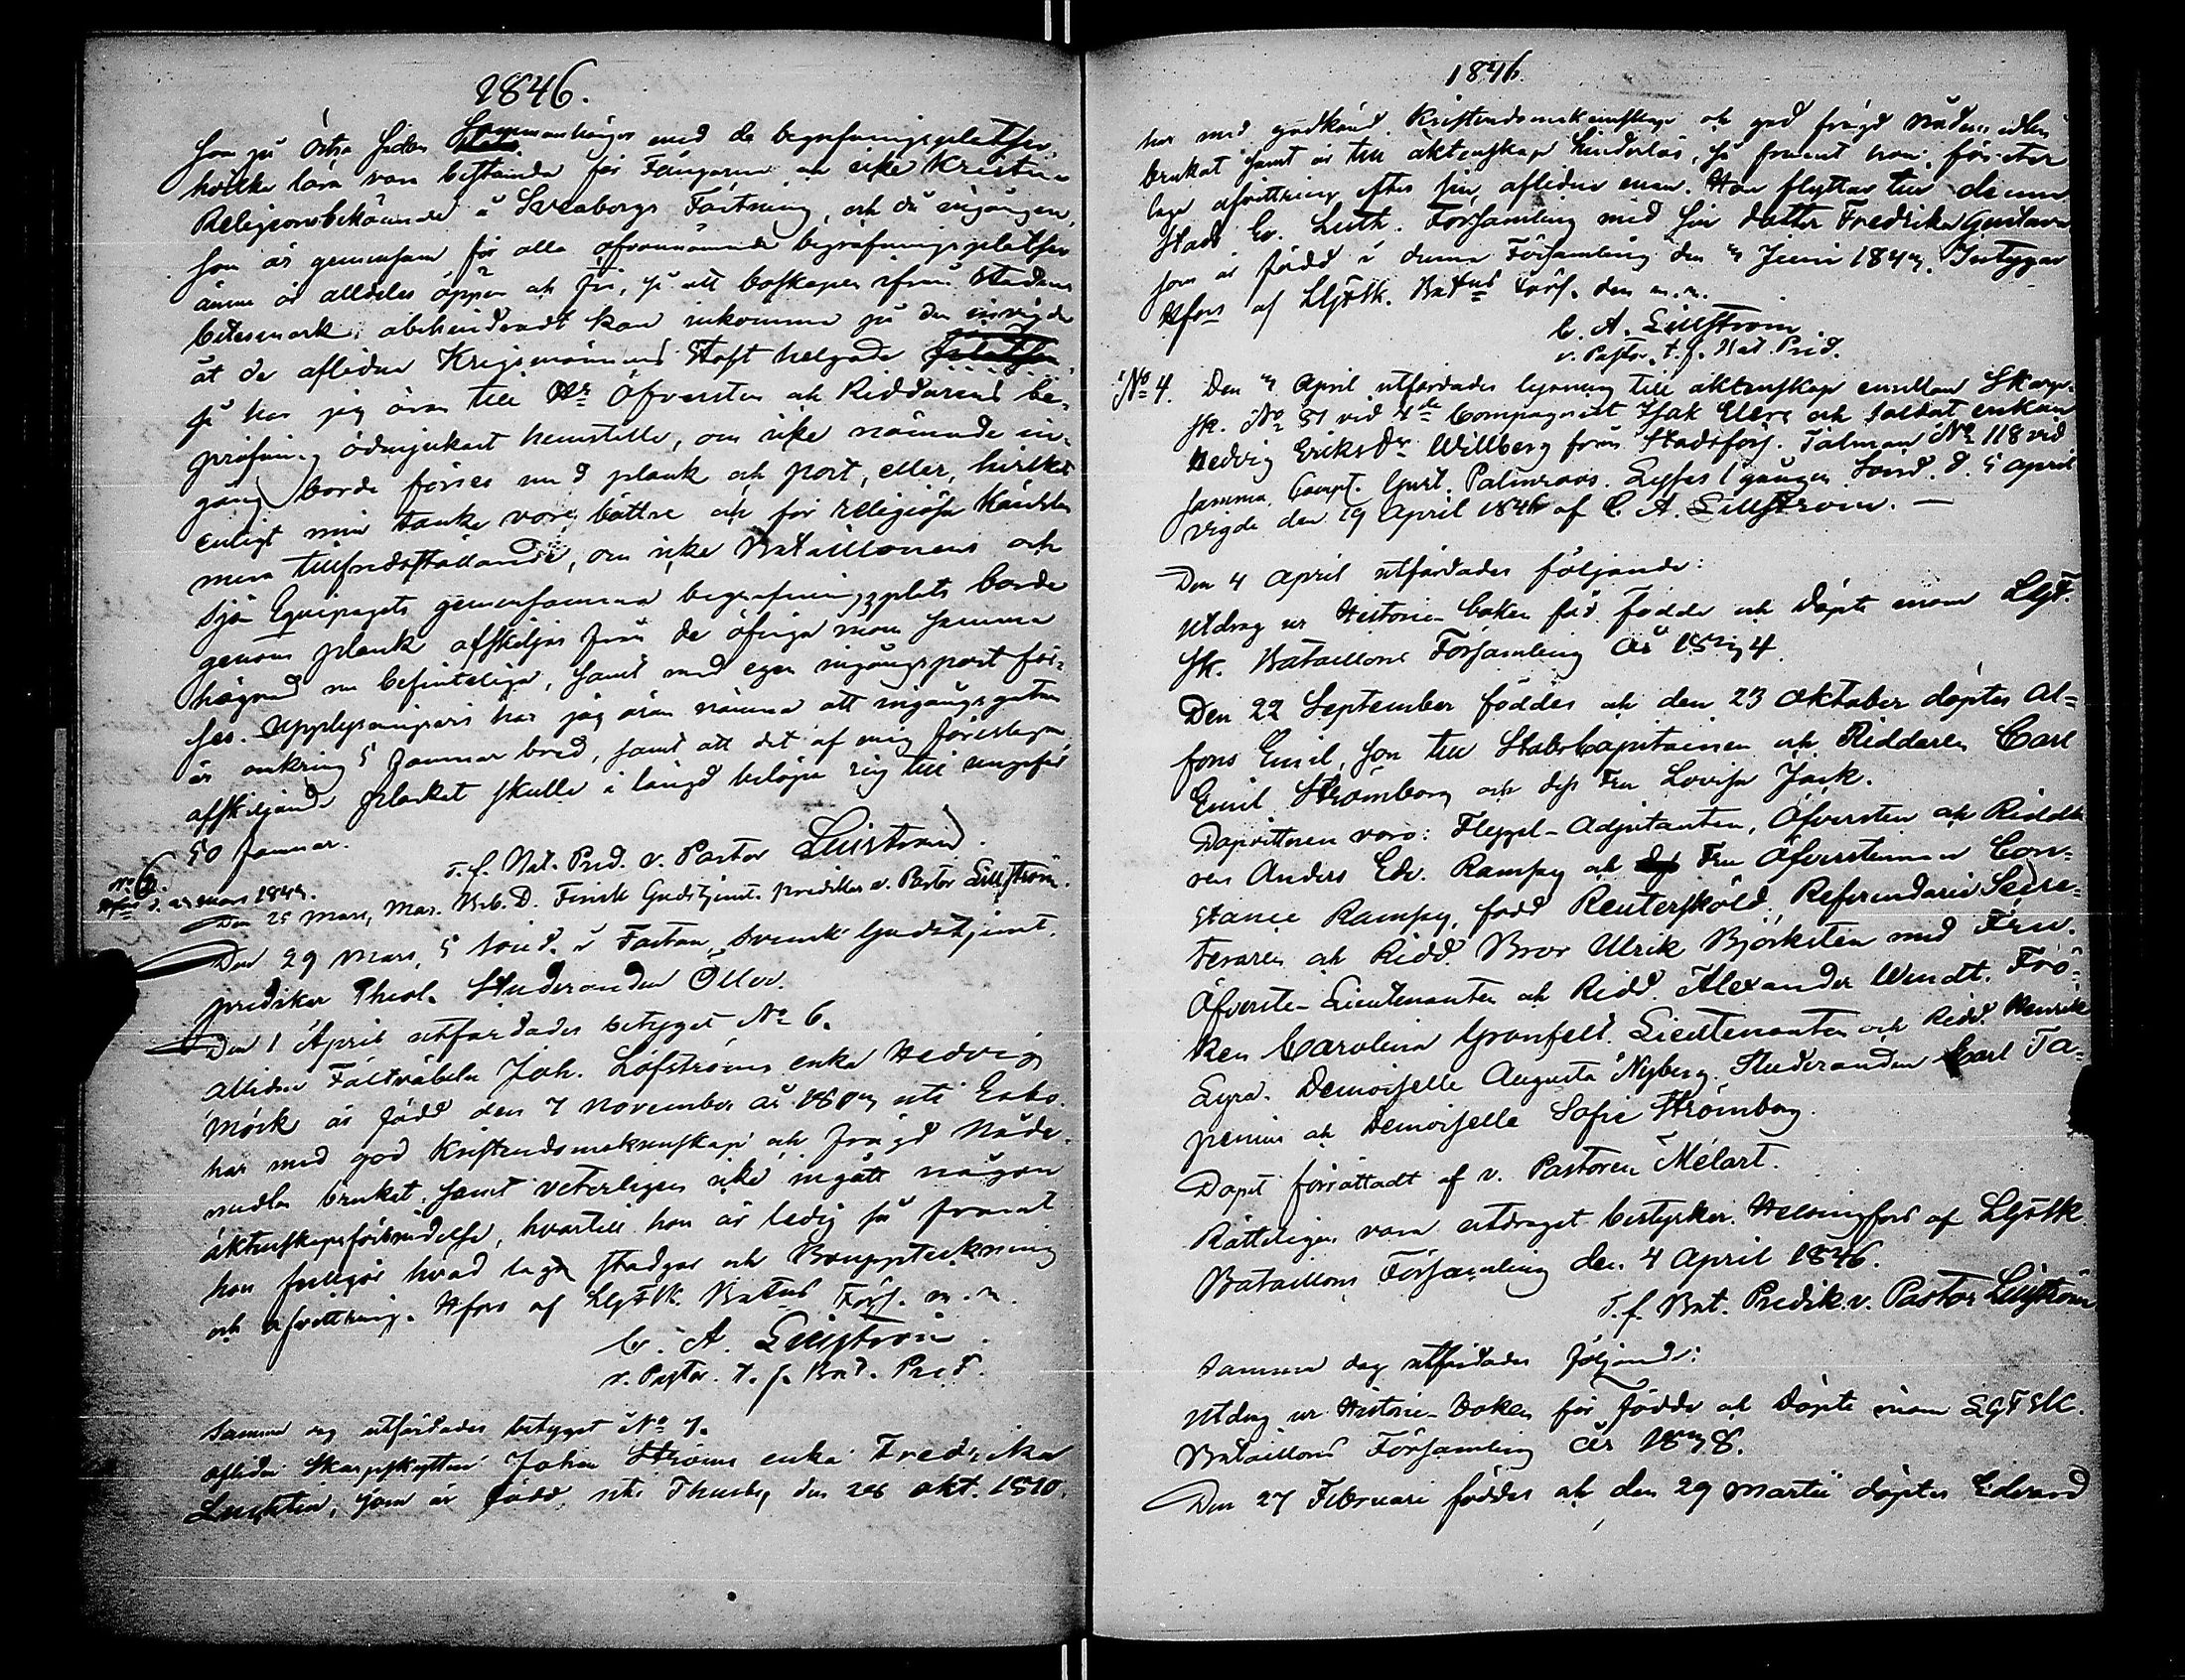 1846.
som på östra sidan sammanhänger med de begrafningsplatser,
hvilka lära vara bestämda för Fångarne och icke Kristna
Religionsbekännande å Sveaborgs Fästning, och då ingången,
som är gemensam för alla ofvannämnde begrafningsplatser
ännu är alldeles öppen och fri, så att boskapen ifrån Stadens
betesmark, obehindradt kan inkomma på den invigda
åt de aflidne Krigsmännens Stoft helgade platsen
så har jag äran till Hr Öfversten och Riddarens be-
pröfning ödmjukast hemställa, om icke nämnde in-
gång borde förses med plank och port, eller, hvilket
enligt min tanke vore bättre och för religiösa känslan
mera tillfredsställande, om icke Bataillonens och
Sjö Equipagets gemensamma begrafningsplats borde
genom plank afskiljas från de öfriga inom samma
hägnad nu befinteliga, samt med egen ingångsport för-
ses. Upplysningsvis har jag äran nämna att ingångsgatan
är omkring 5 famnar bred, samt att det af mig föreslagna
afskiljande planket skulle i längd belöpa sig till ungefär
50 famnar.
T. f. Bat. Pred. v. Pastor Lillström.
No 6.
Den 25 Mars, Mar. Beb. D. Finsk Gudstjenst. predikar v. Pastor Lillström.
Den 29 Mars, 5 Sönd. i Fastan, Svensk Gudstjenst,
predikar Theol. Studeranden
Den 1 April utfärdades betyget No 6.
Aflidne Fältväbeln Joh. Löfströms enka Hedvig
Mörk är född den 7 November år uti Esbo.
har med god Kristendomskunskap och frägd Nåde-
medlen brukat, samt veterligen icke ingått någon
äktenskapsförbindelse, hvartill hon är ledig så framt
hon fullgör hvad lagen stadgar och Bouppteckning
och afvittring. Hfors af LgFSk. Batns Förs. m. m.
C. A. Lillström.
v. Pastor. t. f. Bat. Pred.
Samma dag utfärdades betyget No 7.
aflidne Skarpskytten Johan Ströms enka Fredrika
som är född uti Thusby den 26 okt. 1810,
1846.
har med godkänd Kristendomskunskap och god frägd nådemedlen
brukat samt är till äktenskap hinderlös, så framt hon företer
laga afvittring efter sin aflidne man. Hon flyttar till denna
Stads Ev. Luth. Församling med sin dotter Fredrika Gustava
som är född i denna Församling den 4 Juni Intygar
Hfors af LgFSk. Batns Förs. den m. m.
C. A. Lillström.
v. Pastor. t. f. Bat. Pred.
No 4. Den 4 April utfärdades lysning till äktenskap emellan Skarp-
sk. No 51 vid 4de Compagniet Isak och Soldat enkan
Hedvig Eriksdr Willberg från Stadsförs. Talman No 118 vid
samma Comp. Gust. Palmroos. Lystes 1 gången Sönd. d. 5 April
vigde den 19 April 1846 af C. A. Lillström. —
Den 4 April utfärdades följande:
Utdrag ur Historie-boken för födde och döpte inom LgF.
Sk. Bataillons Församling år
Den 22 September föddes och den 23 Oktober döptes Al-
fons Emil, son till Stabskapitainen och Riddaren Carl
Emil Strömborg och dess Fru Lovisa Jack.
Dopvittnen voro: Flygel-Adjutanten, Öfversten och Ridda-
ren Anders Edv. Ramsay och Fru Öfverstinnan Con-
stance Ramsay, född Reuterskiöld, Referendarie Secre-
teraren och Ridd. Bror Ulrik Björkstén med Fru.
Öfverste-Lieutenanten och Ridd. Alexander Wendt. Frö-
ken Carolina Granfelt. Lieutenanten och Ridd. Henrik
Lyra. Demoiselle Augusta Nyberg. Studeranden Carl Ta-
penius och Demoiselle Sofie Strömborg.
Dopet förrättadt af v. Pastoren Melart.
Rätteligen vara utdraget bestyrker. Helsingfors af LgFSk
Bataillons Församling den 4 April 1846.
T. f. Bat. Predik. v. Pastor Lillström
Samma dag utfärdades följande:
Utdrag ur Historie-Boken för Födde och Döpte inom LgFSk.
Bataillons Församling år
Den 27 Februari föddes och den 29 Martii döptes Edvard